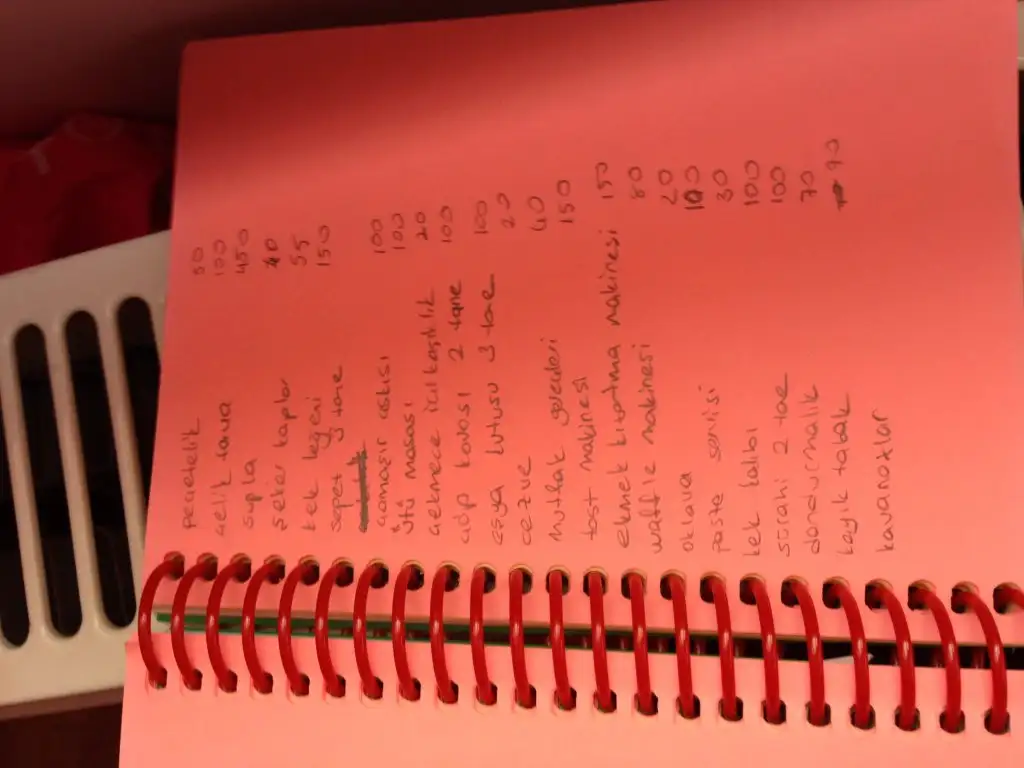 peçetelik 50
çelik tava 100
supla 450
şeker kapları 40
kek leğeni 55
sepet 3 tane 150
çamaşır askısı 100
ütü masası 100
çekmece içi kaşıklık 20
çöp kovası 2 tane 100
eşya kutusu 3 tane 100
cezve 20
mutfak gereçleri 60
tost makinesi 150
ekmek kızartma makinesi 150
waffle makinesi 80
oklava 20
pasta servisi 100
kek kalıbı 30
sürahi 2 tane 100
dondurmalık 100
kayık tabak 70
kavanozlar 70